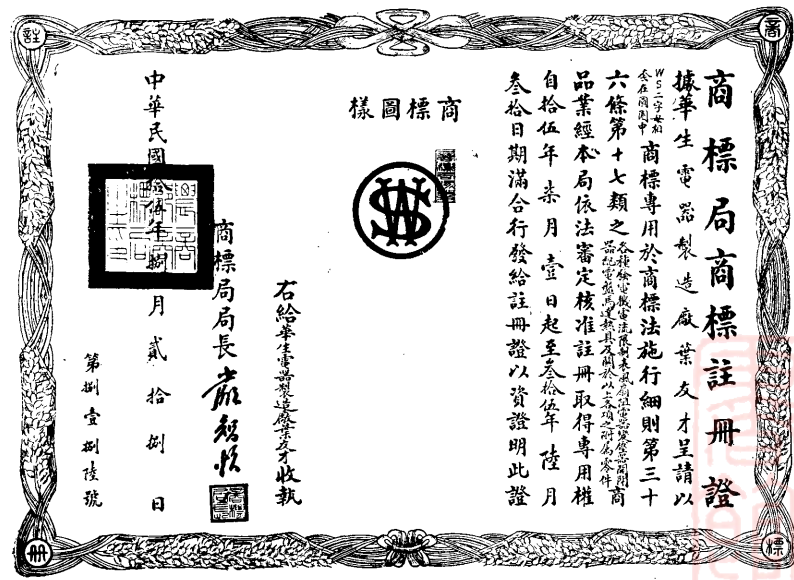 商標局商標註冊證
據華生電器製造廠葉友才呈請以
WS二字母相套在圓圈中商標專用於商標法施行細則第三十
六條第十七類之各種發電機電流限制表風扇阻電器變壓器開關器配電盤馬達熱具及關於以上各項之附属零件商
品業經本局依法審定核准註冊取得專用權
自拾伍年柒月壹日起至叁拾伍年陸月
叁拾日期滿合行發給註冊證以資證明此證
商標圖樣
WS
右給華生電器製造廠葉友才收執
商標局局長嚴智怡
中華民國拾伍年捌月貳拾捌日
第捌壹捌陸號
商
標
註
冊